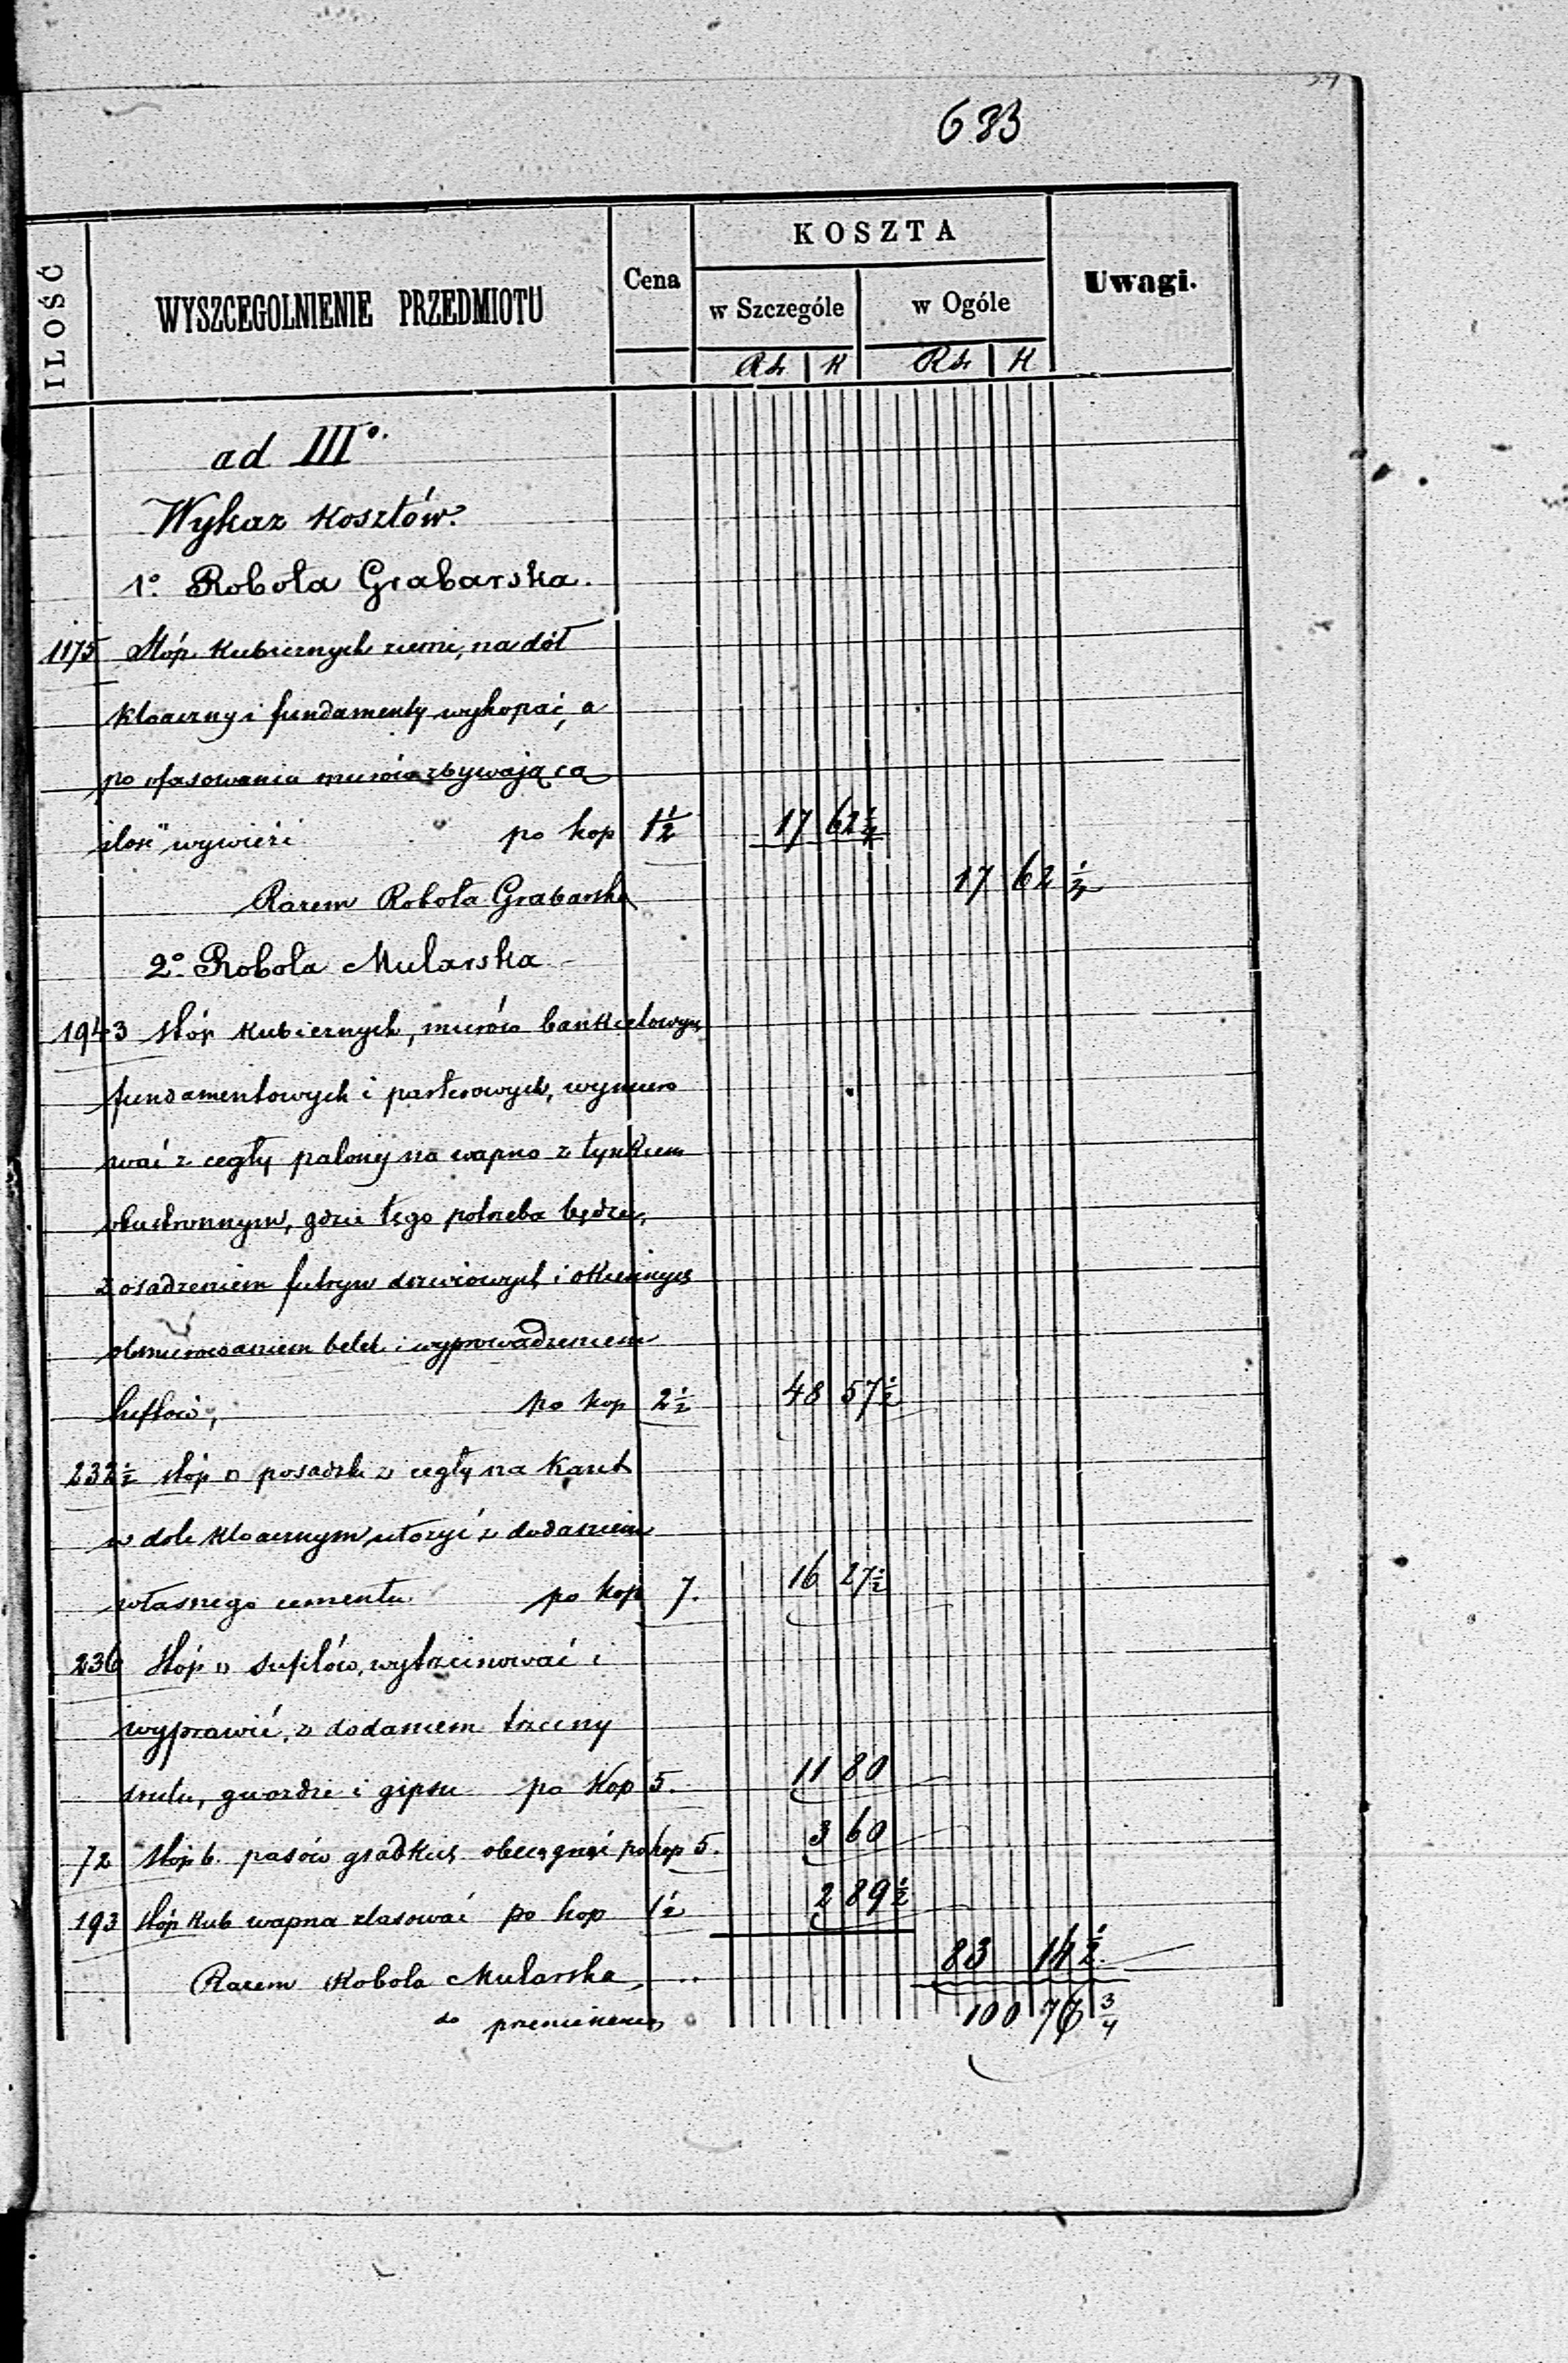 683
KOSZTA
ILOŚĆ WYSZCEGOLNIENIE PRZEDMIOTU Cena w Szczególe w Ogóle Uwagi.
Rs. K Rs. K
ad III°.
Wykaz kosztów.
1° Robota Grabarska.
1175 Stóp kubicznych ziemi, na dół
kloaczny i fundamenty wykopać, a
po ofasowaniu murów zbywającą
ilość wywieść po kop 1½ 17 62½
Razem Robota Grabarska 17 62 ½
2° Robota Mularska
1943 stóp kubicznych, murów bankietowych
fundamentowych i parterowych, wymuro
wać z cegły palonej na wapno z tynkiem
obustronnym, gdzie tego potrzeba będzie,
z osadzeniem futryn drzwiowych i okiennych
obmurowaniem belek i wyprowadzeniem
luftów, po kop 2½ 48 57½
232½ stóp □ posadzki z cegły na kant
w dole kloacznym ułożyć z dodaniem
własnego cementu po kop 7. 16 27½
236 stóp □ sufitów, wytrzcinować i
wyprawić, z dodaniem trzciny
drutu, gwoździ i gipsu po kop 5. 11 80
72 stóp b. pasów gradkuś obciągnąć po kop 5. 3 60
193 stóp kub wapna zlasować po kop 1½ 2 89½
Razem Robota Mularska 83 14 ½
do przeniesienia 100 76 ¾